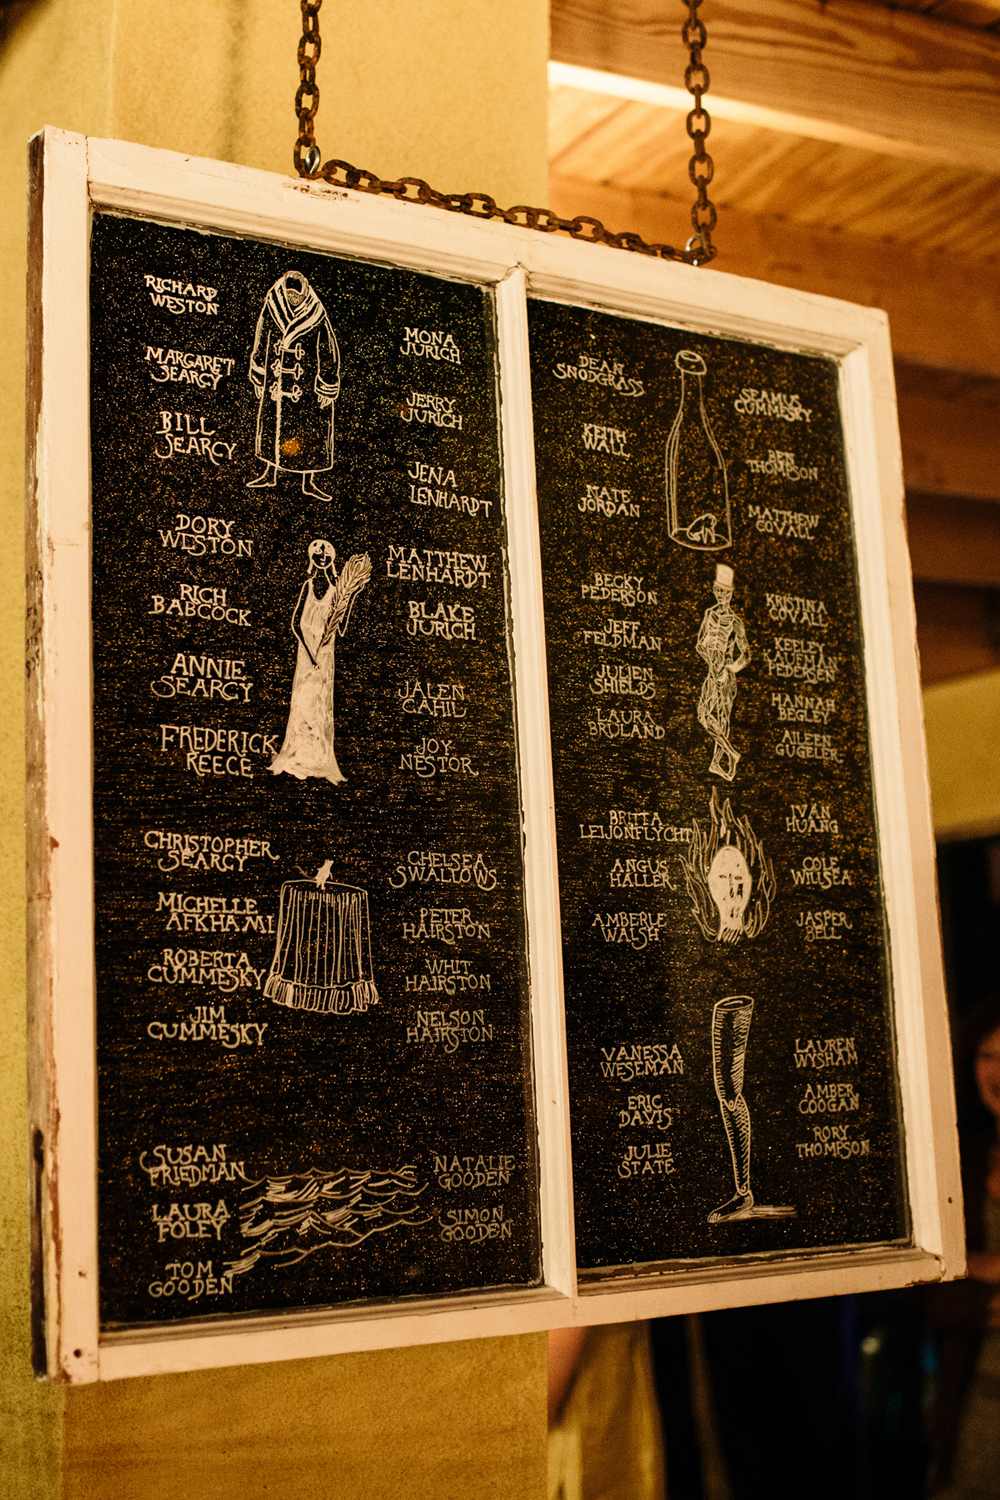 RICHARD
WESTON
MARGARET
SEARCY
BILL
SEARCY
MONA
JURICH
JERRY
JURICH
JENA
LENHARDT
DORY
WESTON
RICH
BABCOCK
ANNIE
SEARCY
FREDERICK
REECE
MATTHEW
LENHARDT
BLAKE
JURICH
JALEN
CAHIL
JOY
NESTOR
CHRISTOPHER
SEARCY
MICHELLE
AFKHAMI
ROBERTA
CUMMESKY
JIM
CUMMESKY
CHELSEA
SWALLOWS
PETER
HAIRSTON
WHIT
HAIRSTON
NELSON
HAIRSTON
SUSAN
FRIEDMAN
LAURA
FOLEY
TOM
GOODEN
NATALIE
GOODEN
SIMON
GOODEN
DEAN
SNODGRASS
KEITH
WALL
NATE
JORDAN
SEAMUS
CUMMESKY
BEN
THOMPSON
MATTHEW
COVALL
BECKY
PEDERSON
JEFF
FELDMAN
JULIEN
SHIELDS
LAURA
BROLAND
KRISTINA
COVALL
KEELEY
KAUFMAN
PEDERSEN
HANNAH
BEGLEY
AILEEN
GUGELER
BRITTA
LEIJONFLYCHT
ANGUS
HALLER
AMBERLE
WALSH
IVAN
HUANG
COLE
WILLSEA
JASPER
BELL
VANESSA
WESEMAN
ERIC
DAVIS
JULIE
STATE
LAUREN
WYSHAM
AMBER
COOGAN
RORY
THOMPSON